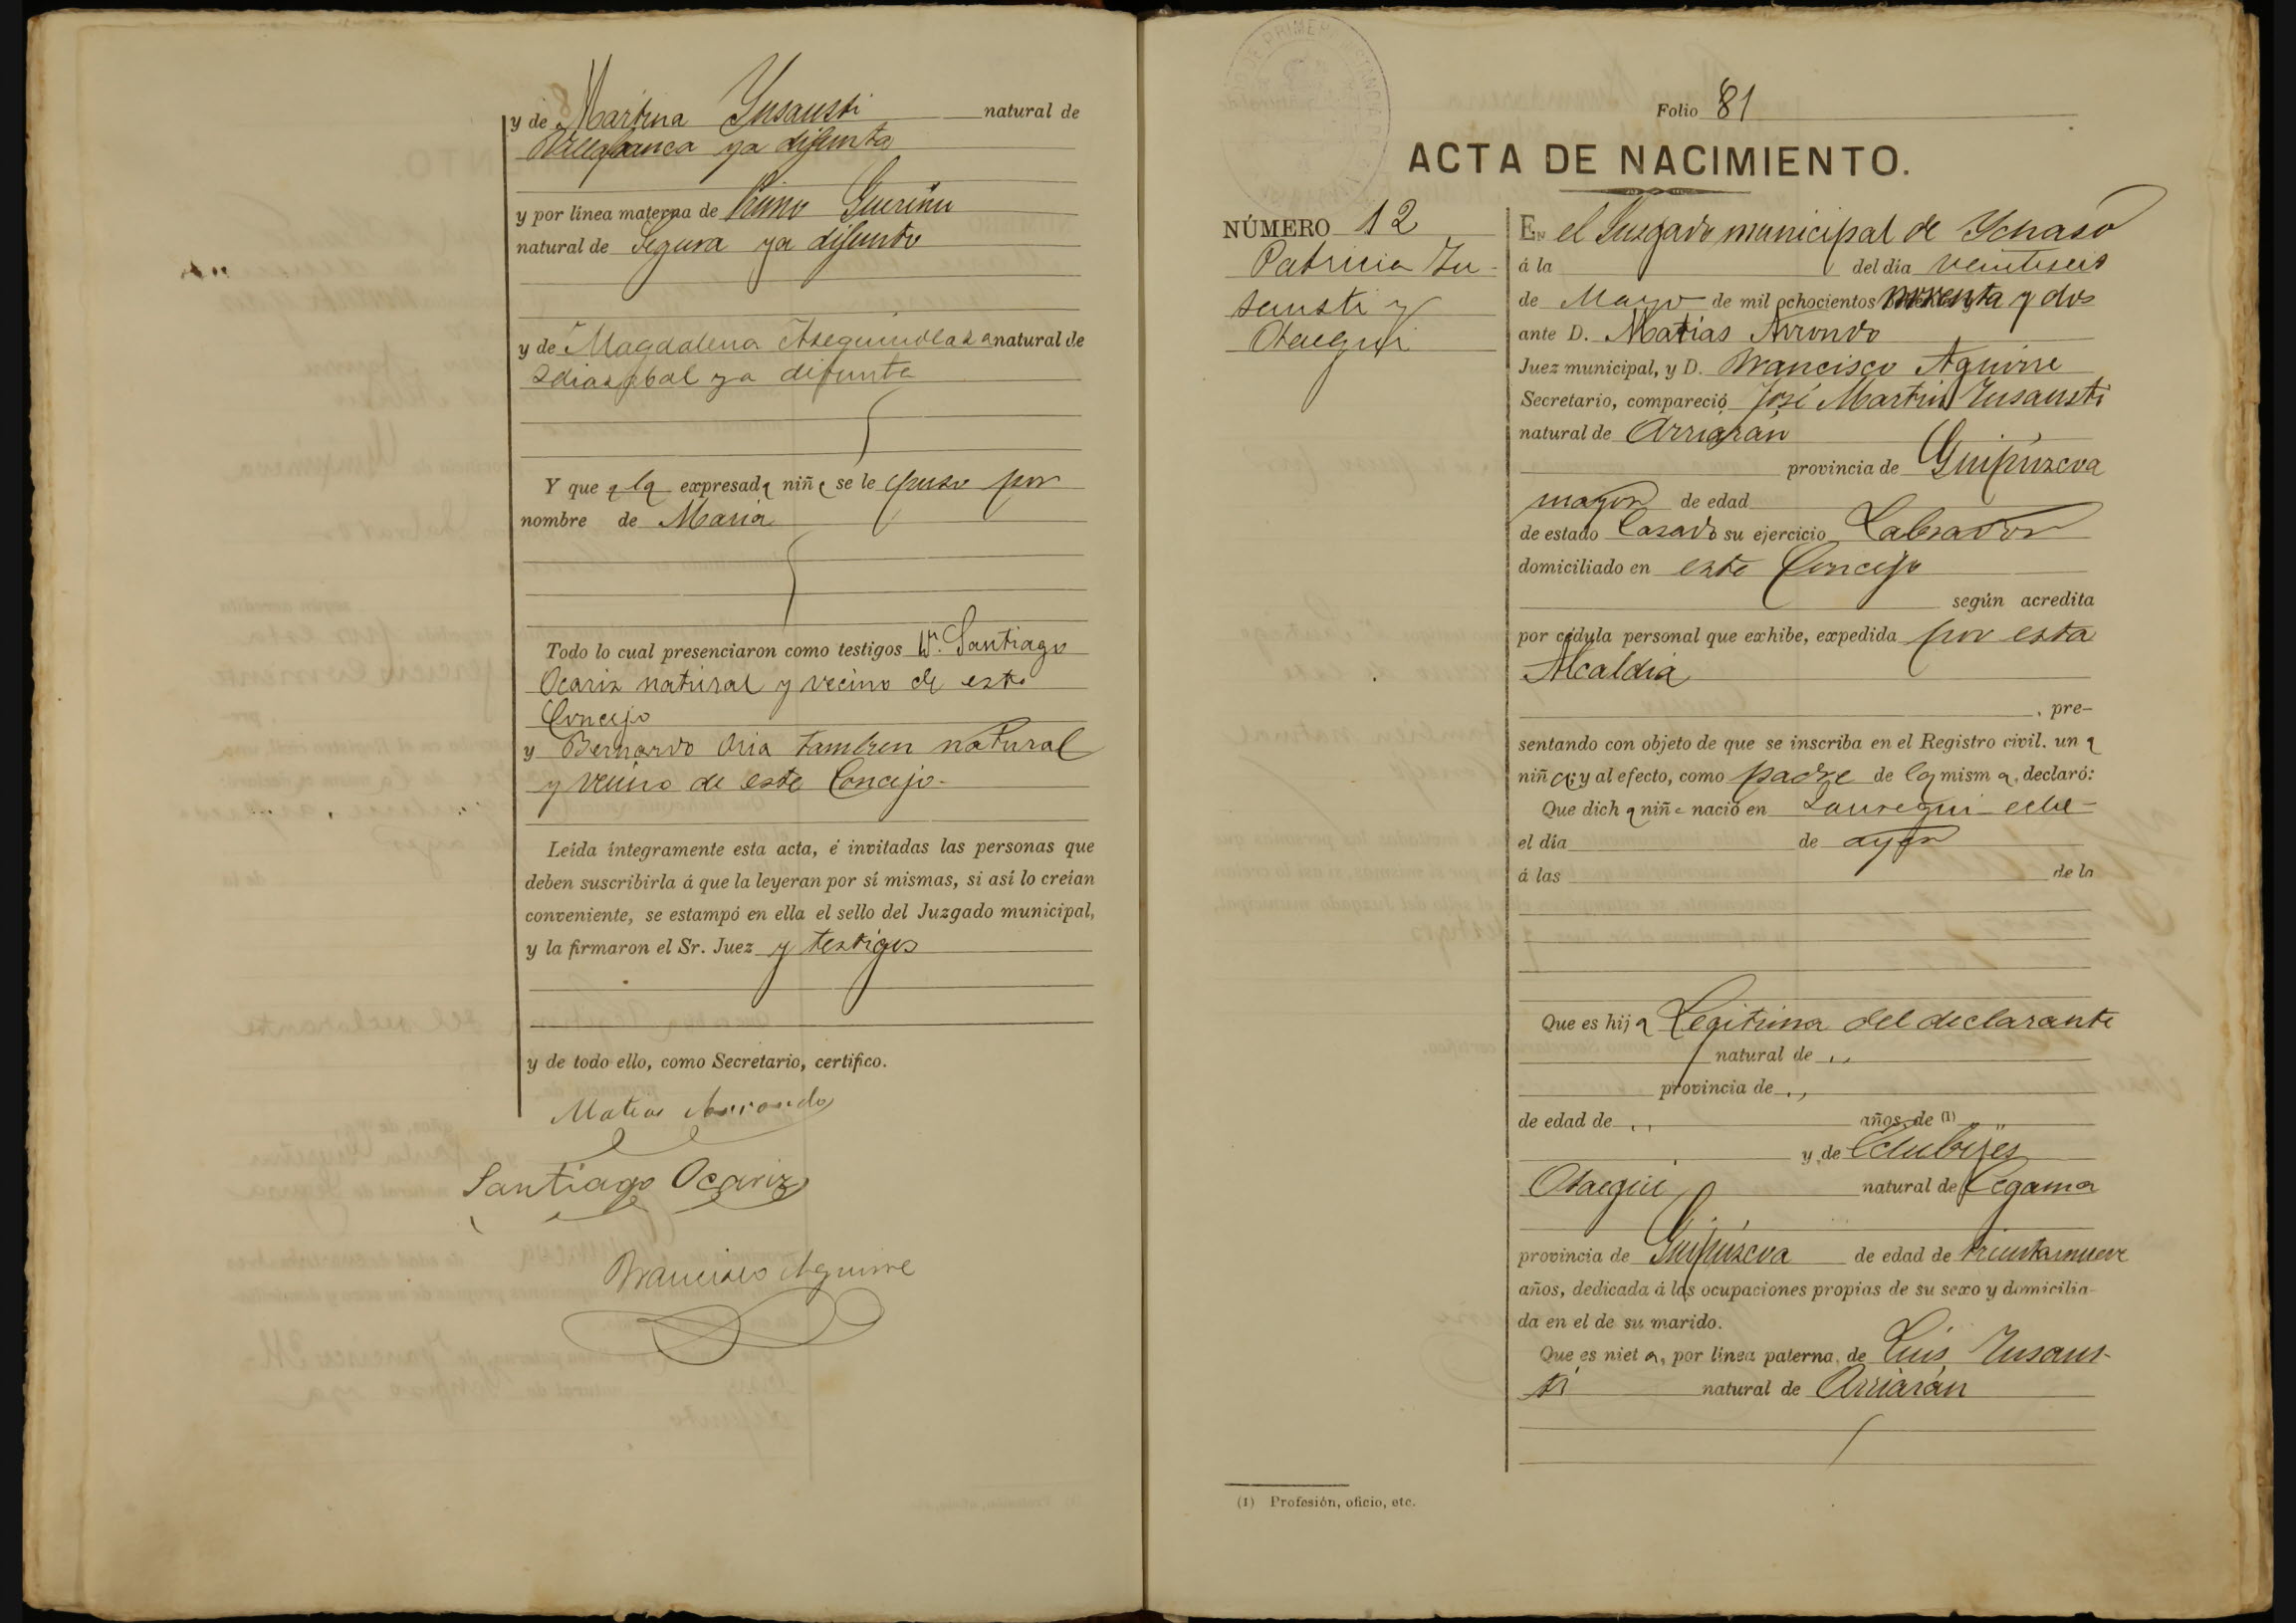 y de Martina Ynsausti natural de
Villafranca ya difunta
y por línea materna de
natural de Segura ya difunto
y de Magdalena natural de
Idiazabal ya difunta
Y que a la expresada niña se le puso por
nombre de Maria
Todo lo cual presenciaron como testigos Dn. Santiago
Ocariz natural y vecino de este
Concejo
y Bernardo Oria tambien natural
y vecino de este Concejo-
Leída íntegramente esta acta, é invitadas las personas que
deben suscribirla á que la leyeran por sí mismas, si así lo creían
conveniente, se estampó en ella el sello del Juzgado municipal,
y la firmaron el Sr. Juez y testigos
y de todo ello, como Secretario, certifico.
Matias Arrondo
Santiago Ocariz
Francisco Aguirre
Folio 81
ACTA DE NACIMIENTO.
NÚMERO 12
Patricia In-
sausti y
Otaegui
EN el Juzgado municipal de Ychaso
á la del día veintiseis
de Mayo de mil ochocientos noventa y dos
ante D. Matías Arrondo
Juez municipal, y D. Francisco Aguirre
Secretario, compareció José Martin Insausti
natural de Arriarán
provincia de Guipúzcoa
mayor de edad
de estado Casado su ejercicio Labrador
domiciliado en este Concejo
según acredita
por cédula personal que exhibe, expedida por esta
Alcaldia
, pre-
sentando con objeto de que se inscriba en el Registro civil. una
niña; y al efecto, como padre de la misma, declaró:
Que dicha niña nació en Jauregui eche-
el día de ayer
á las de la
Que es hija Legitima del declarante
natural de ,,
provincia de ,,
de edad de ,, años, de (1) ,,
y de
Otaegui natural de Cegama
provincia de Guipúzcoa de edad de treintanueve
años, dedicada á las ocupaciones propias de su sexo y domicilia-
da en el de su marido.
Que es nieta, por línea paterna, de Luis Insaus-
ti natural de Arriarán
(1) Profesión, oficio, etc.